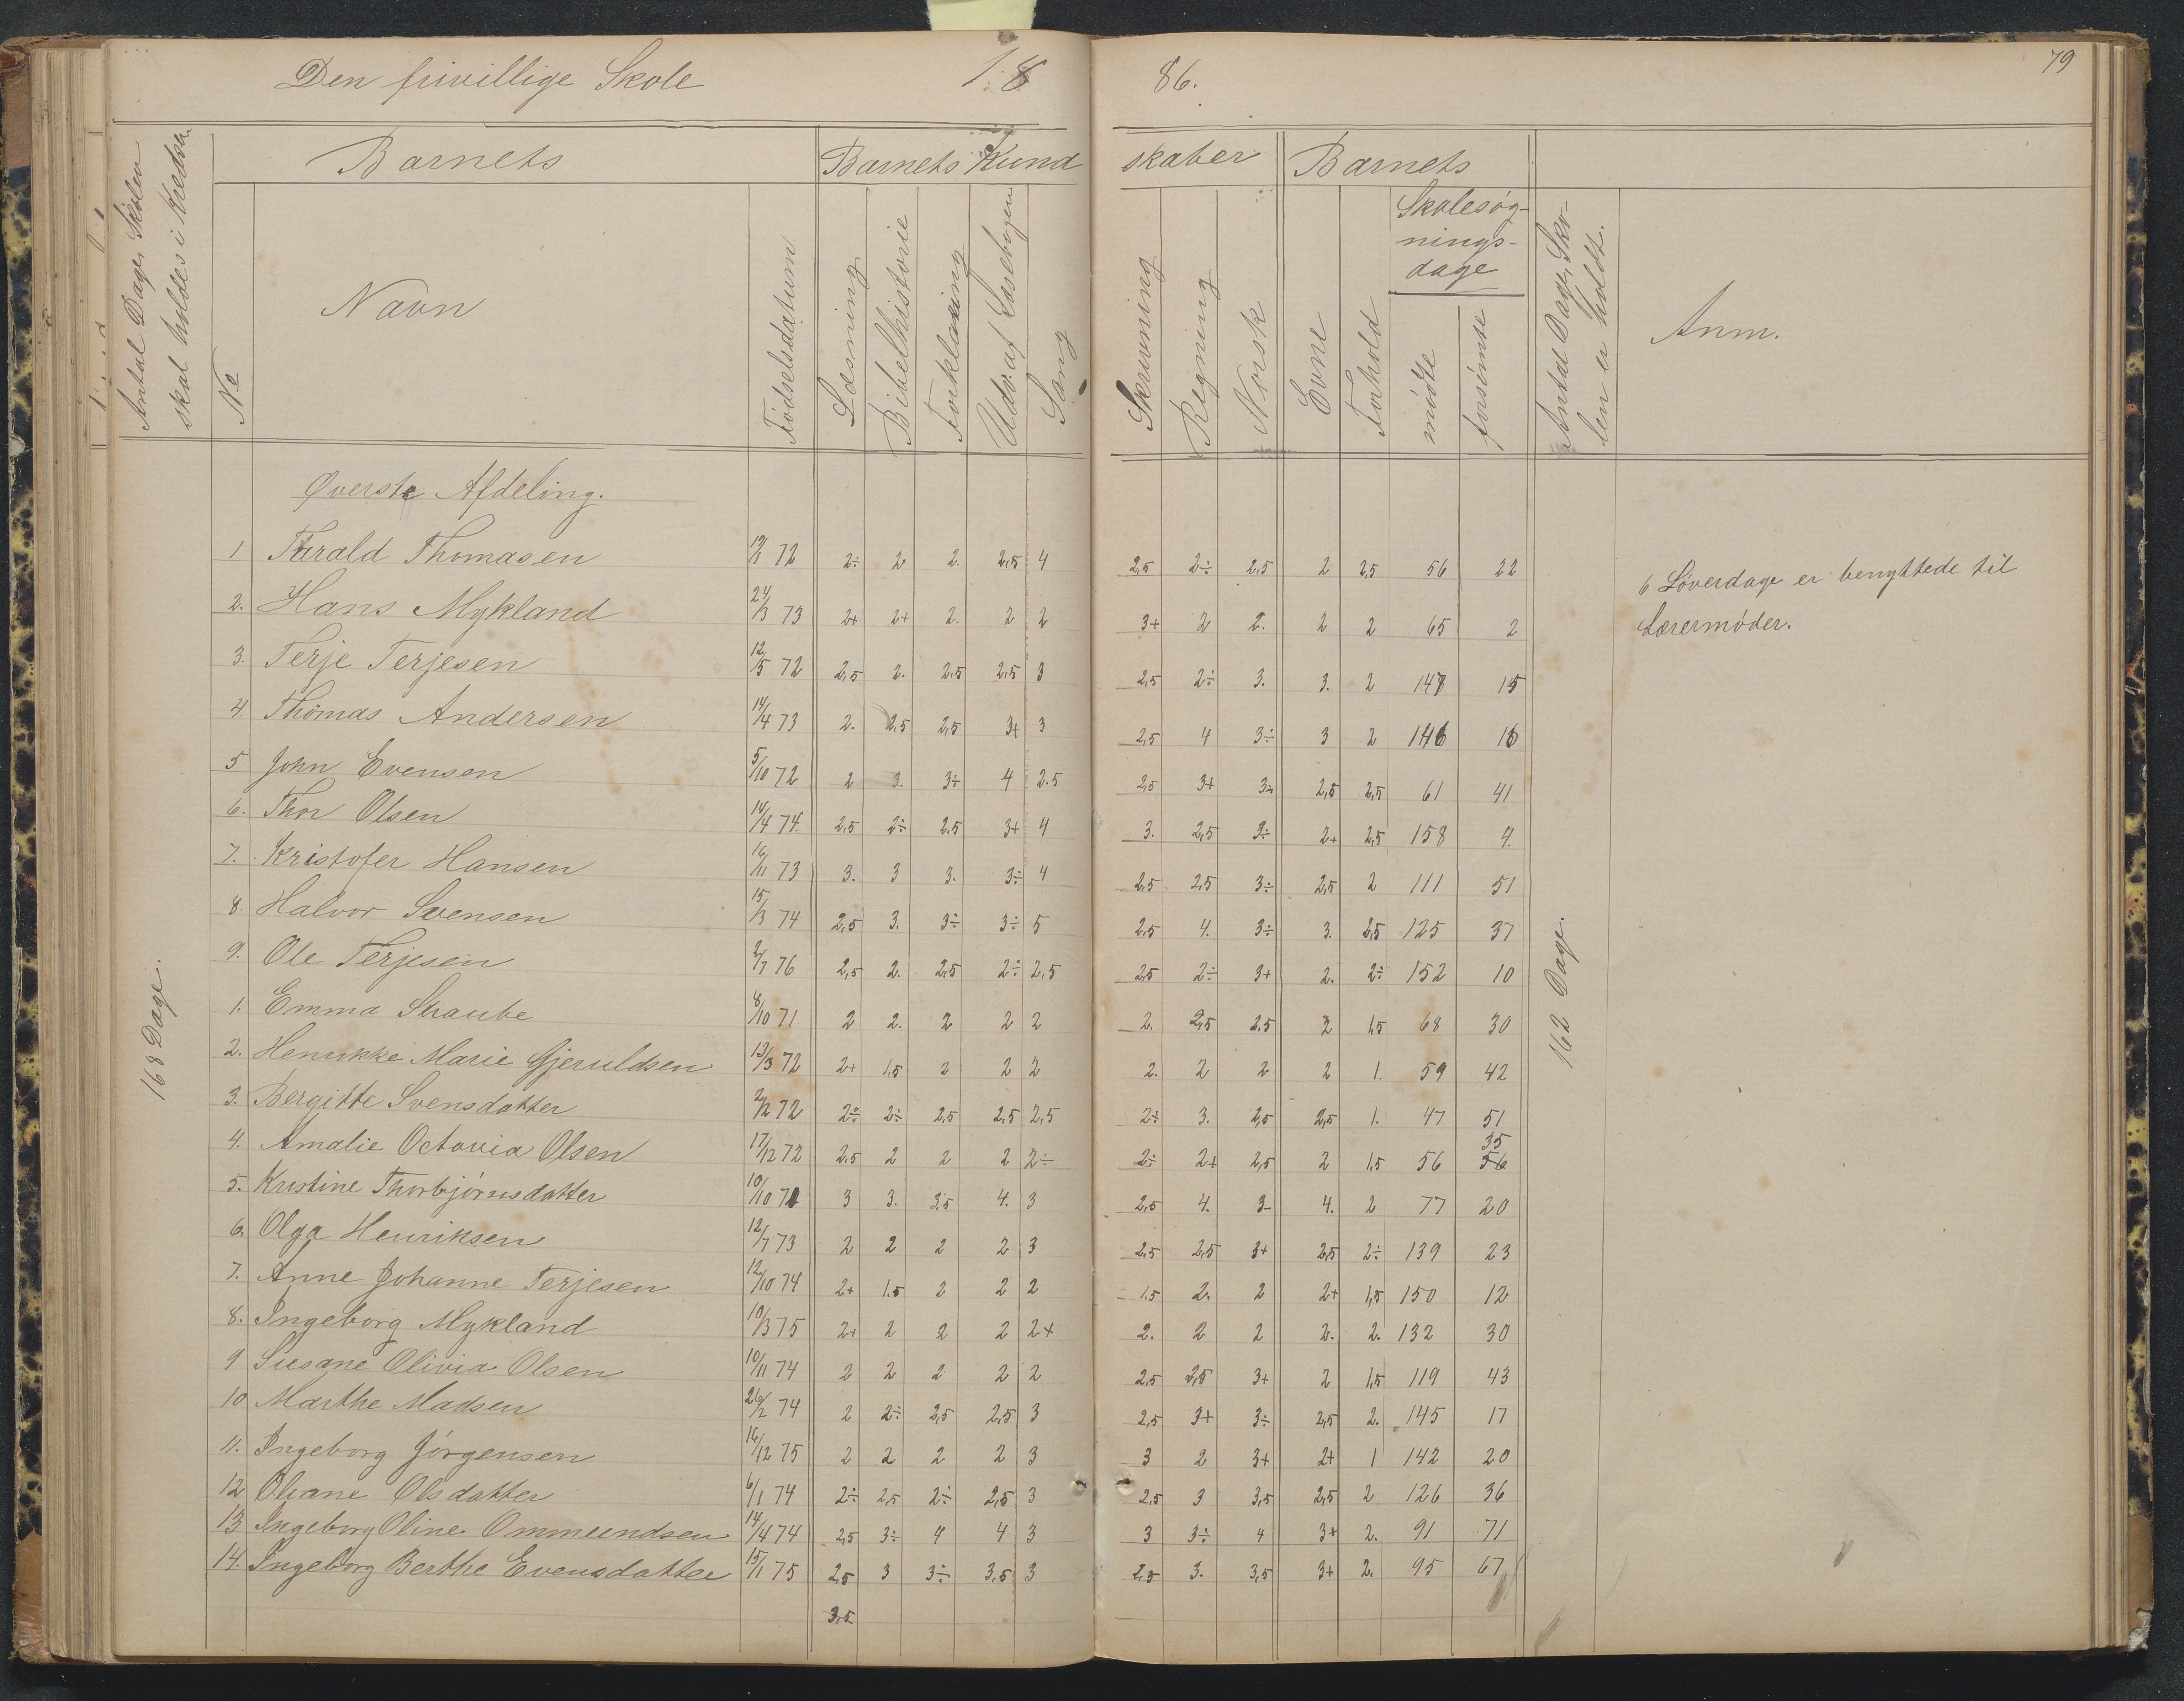 Den frivillige Skole 18 86. 79
Antal Dage, Skolen skal holdes i Kredsen
Barnets Barnets Kund skaber Barnets
Nº Navn Fødselsdatum Læsning Bibelhistorie Forklaring Udv. af Læsebogen Sang Skrivning Regning Norsk Evne Forhold Skolesøg-
nings-
dage
mødte forsømte Antal Dage, Sko-
len er holdt. Anm.
Øverste Afdeling.
1 Tarald Thomasen 19/1 72 2÷ 2 2. 2,5 4 2,5 2÷ 2,5 2 2,5 56 22
6 Løverdage er benyttede til
Lærermøder.
2. Hans Mykland 24/3 73 2+ 2+ 2. 2 2 3+ 2 2. 2 2 65 2
3. Terje Terjesen 12/5 72 2,5 2. 2,5 2,5 3 2,5 2÷ 3. 3. 2 147 15
4 Thomas Andersen 14/4 73 2. 2,5 2,5 3+ 3 2,5 4 3÷ 3 2 146 16
5 John Evensen 5/10 72 2 3. 3÷ 4 2.5 2,5 3+ 3÷ 2,5 2,5 61 41
6. Thor Olsen 14/4 74. 2,5 2÷ 2,5 3+ 4 3. 2,5 3÷ 2+ 2,5 158 4.
7. Kristofer Hansen 16/11 73 3. 3 3. 3÷ 4 2,5 2,5 3÷ 2,5 2 111 51
8. Halvor Svensen 15/3 74 2,5 3. 3÷ 3÷ 5 2,5 4. 3÷ 3. 2,5 125 37
9. Ole Terjesen 2/7 76 2,5 2. 2,5 2÷ 2,5 2,5 2÷ 3+ 2. 2÷ 152 10
168 Dage. 162 Dage.
1. Emma Straube 8/10 71 2 2. 2 2 2 2. 2,5 2.5 2 1,5 68 30
2. Henrikke Marie Gjeruldsen 13/3 72 2+ 1,5 2 2 2 2. 2 2 2 1. 59 42
3. Bergitte Svensdatter 2/2 72 2÷ 2÷ 2,5 2,5 2,5 2÷ 3. 2,5 2,5 1. 47 51
4. Amalie Octavia Olsen 17/12 72 2,5 2 2 2 2÷ 2÷ 2+ 2,5 2 1,5 56 35 56
5. Kristine Thorbjørnsdatter 10/10 72 3 3. 3.5 4. 3 2,5 4. 3- 4. 2 77 20
6. Olga Henriksen 12/7 73 2 2 2 2 3 2.5 2,5 3+ 2,5 2÷ 139 23
7. Anne Johanne Terjesen 12/10 74 2+ 1.5 2 2 2 1.5 2. 2 2+ 1,5 150 12
8. Ingeborg Mykland 10/3 75 2+ 2 2 2 2+ 2. 2 2 2. 2. 132 30
9 Susane Olivia Olsen 10/11 74 2 2 2 2 2 2,5 2,5 3+ 2 1,5 119 43
10 Marthe Madsen 26/2 74 2 2÷ 2,5 2,5 3 2,5 3+ 3÷ 2,5 2. 145 17
11. Ingeborg Jørgensen 16/12 75 2 2 2 2 3 3 2 3+ 2+ 1 142 20
12 Oliane Olsdatter 6/1 74 2÷ 2,5 2÷ 2,5 3 2,5 3 3,5 2,5 2 126 36
13 Ingeborg Oline Ommundsen 14/4 74 2,5 3÷ 4 4 3 3 3÷ 4 3+ 2. 91 71
14. Ingeborg Berthe Evensdatter 15/1 75 2,5 3 3÷ 3,5 3 2,5 3. 3,5 3+ 2. 95 67
3,5